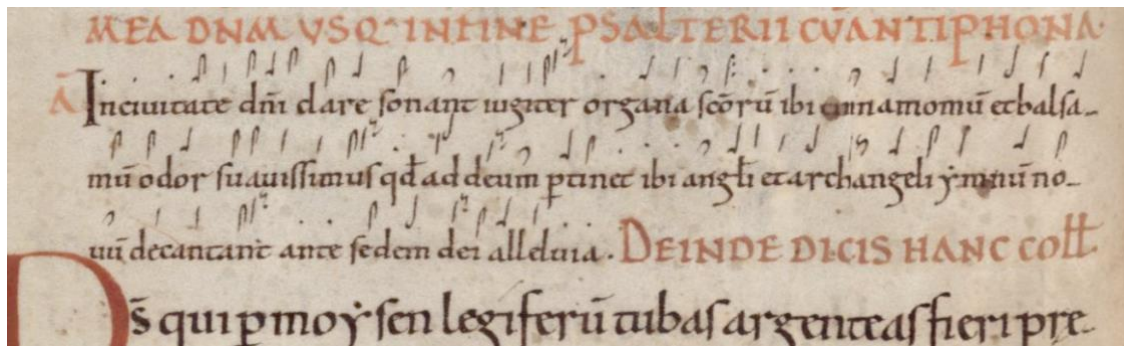 MEA DNM USQ· IN FINE PSALTERII CU ANTIPHONA·
A In civitate dn̄i clare sonant iugiter organa sc̄orū ibi cinnamomū et balsa-
mū odor suavissimus qd̄ ad deum ꝑtinet ibi angłi et archangeli ẏmnū no-
vū decantant ante sedem dei alleluia. DEINDE DICIS HANC COLŁ
Ds̄ qui ꝑ moẏsen legiferū tubas argenteas fieri pre-